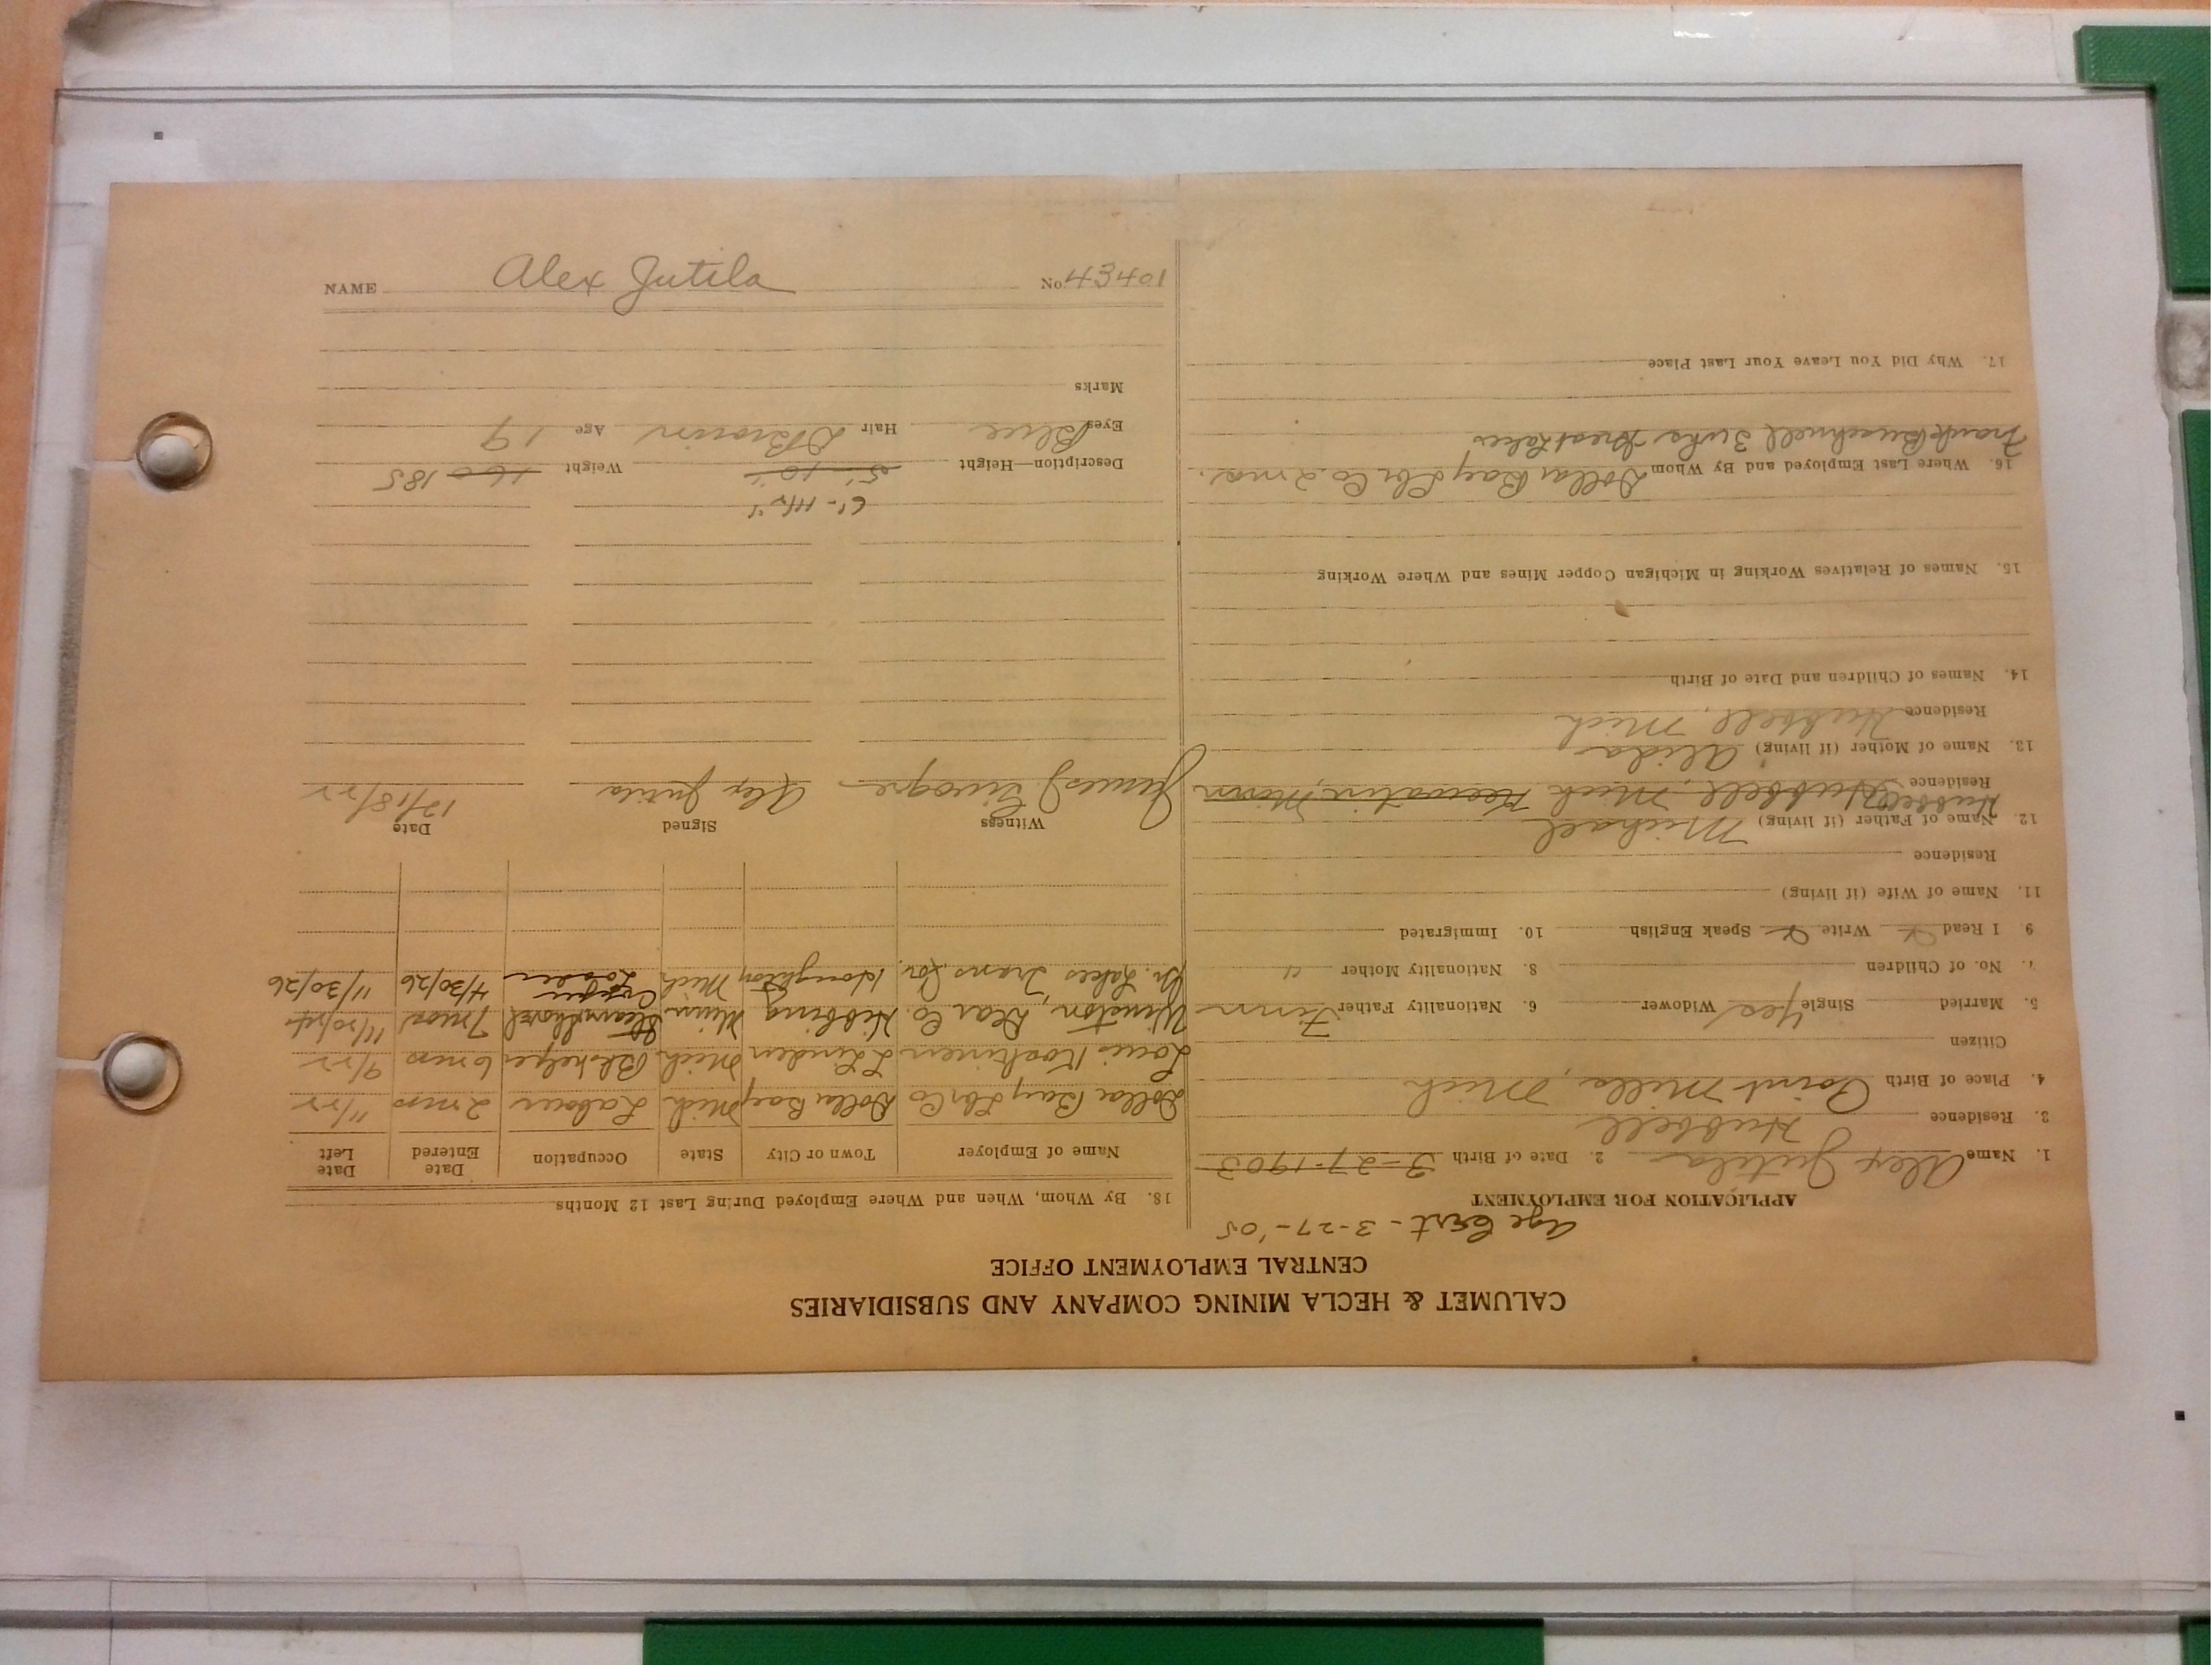 CALUMET & HECLA MINING COMPANY AND SUBSIDIARIES
CENTRAL EMPLOYMENT OFFICE
Age Cert - 3-27-'05
APPLICATION FOR EMPLOYMENT
1. Name Alex Jutila 2. Date of Birth 3-27-1903
3. Residence Hubbell
4. Place of Birth Point Mills, Mich
Citizen
5. Married Single Yes Widower 6. Nationality Father Finn
7. No. of Children 8. Nationality Mother "
9. I Read Write Speak English 10. Immigrated
11. Name of Wife (if living)
Residence
12. Name of Father (if living) Michael
Hubbell
Residence Hubbell, Mich Keewatin, Minn
13. Name of Mother (if living) Alida
Residence Hubbell, Mich
14. Names of Children and Date of Birth
15. Names of Relatives Working in Michigan Copper Mines and Where Working
16. Where Last Employed and By Whom Dollar Bay Lbr Co 2 mos.
Frank Buschnell 3 wks Great Lakes
17. Why Did You Leave Your Last Place
18. By Whom, When and Where Employed During Last 12 Months
Name of Employer Town or City State Occupation Date Entered Date Left
Dollar Bay Lbr Co Dollar Bay Mich Labour 2 mos 11/22
Louis Koskinen L Linden Mich Blk helper 6 mos 9/22
Winston, Dear Co. Hibbing Minn Steam Shovel 7 mos
Gr. Lakes Trans Cor. Houghton Mich Copper Loader 4/30/26 11/30/26
Witness Signed Date
James Alex Jutila 12/18/22
6'-
Description—Height 5'-10" Weight 160 185
Eyes Blue Hair D Brown Age 19
Marks
NAME Alex Jutila No. 43401